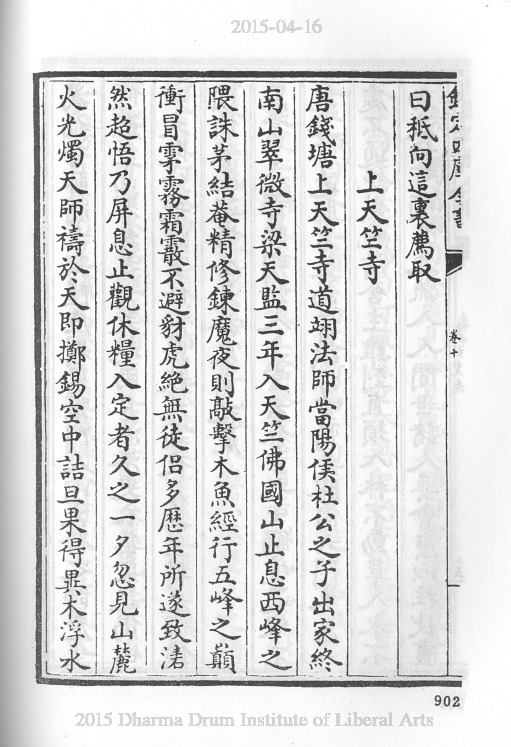 2015-04-16
欽定四庫全書
卷十
一
曰秪向這裏薦取
上天竺寺
唐錢塘上天竺寺道翊法師當陽侯杜公之子出家終
南山翠微寺梁天監三年入天竺佛國山止息西峰之
隈誅茅結菴精修鍊魔夜則敲擊木魚經行五峰之巔
衝冒雺霧霜霰不避豺虎絶無徒侶多歴年所遂致渚
然超悟乃屏息止觀休糧入定者久之一夕忽見山麓
火光燭天師禱於天即擲錫空中詰旦果得異木浮水
902
2015 Dharma Drum Institute of Liberal Arts